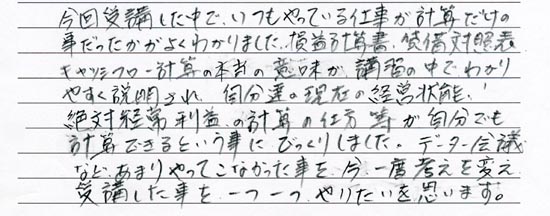 今回受講した中で、いつもやっている仕事が計算だけの
事だったかがよくわかりました。損益計算書、貸借対照表
キャッシュフロー計算の本当の意味が、講習の中でわかり
やすく説明され、自分達の現在の経営状態、
絶対経常利益、の計算の仕方等が自分でも
計算できるという事にびっくりしました。データー会議
など、あまりやってこなかった事を、今、一度考えを変え
受講した事を、一つ一つ、やりたいを思います。